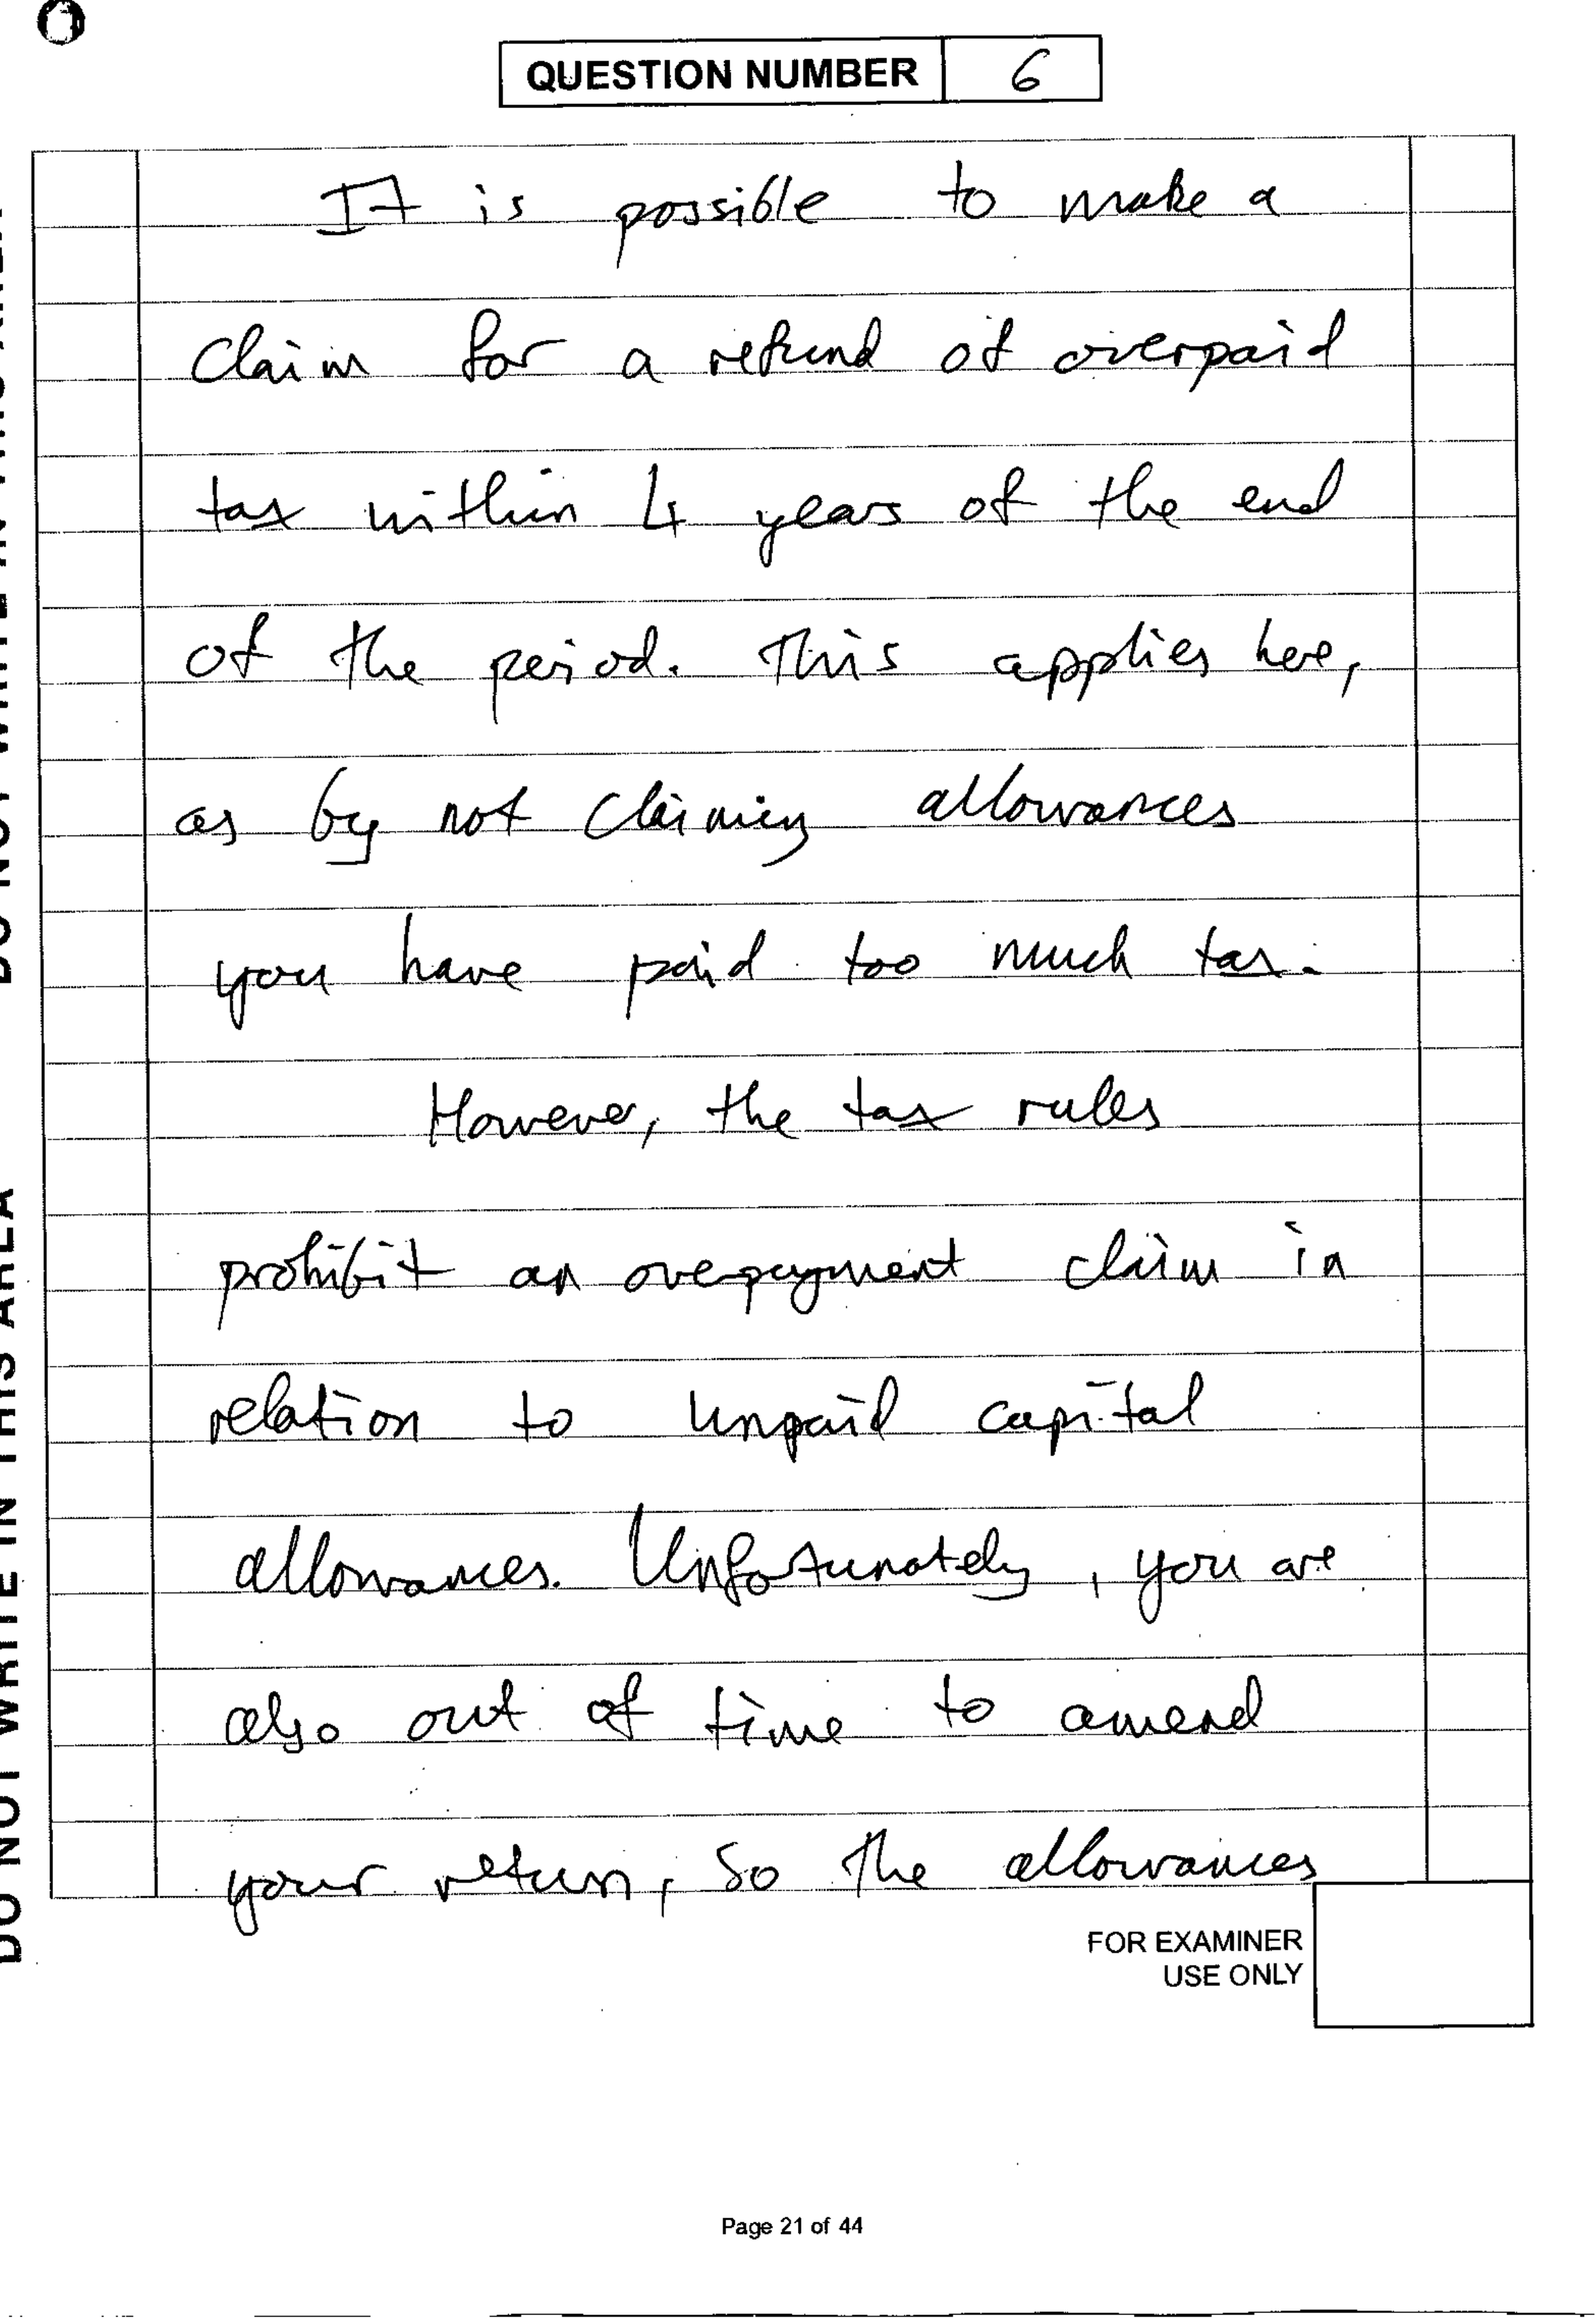 QUESTION NUMBER 6
It is possible to make a
claim for a refund of overpaid
tax within 4 years of the end
of the period. This applies here,
as by not claiming allowances
you have paid too much tax.
However, the tax rules
prohibit an overpayment claim in
relation to unpaid capital
allowances. Unfortunately, you are
also out of time to amend
your return, so the allowances
FOR EXAMINER
USE ONLY
Page 21 of 44
DO NOT WRITE IN THIS AREA